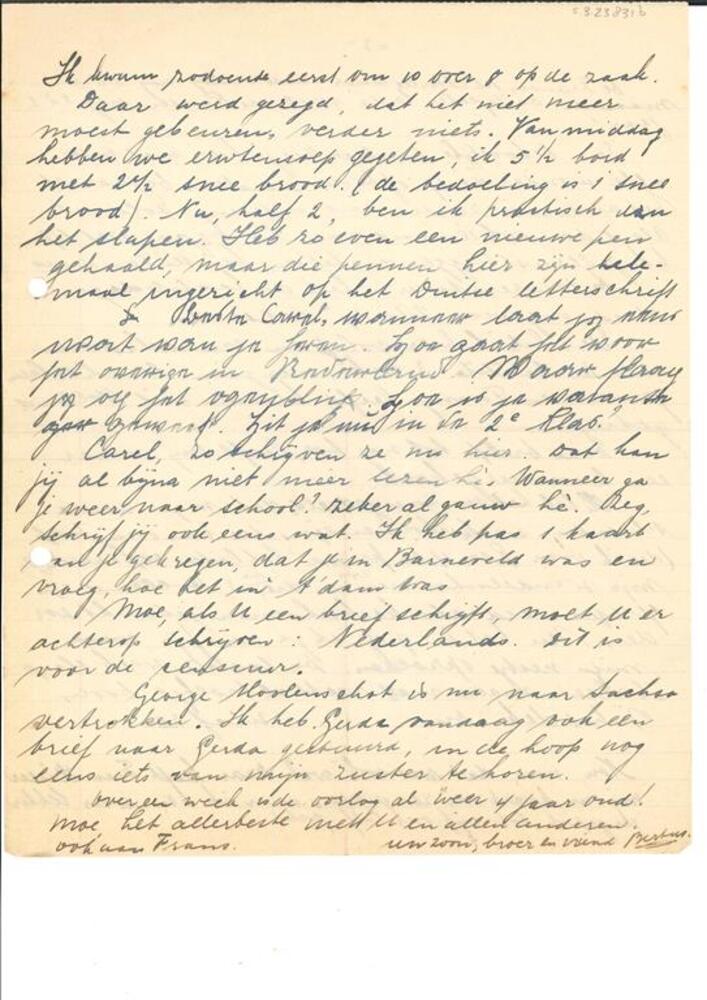 S.3.23831b
Ik kwam zodoende eerst om 10 over 8 op de zaak.
Daar werd gezegd, dat het niet meer
moest gebeuren, verder niets. Van middag
hebben we erwtensoep gegeten, ik 5½ bord
met 2½ snee brood. (de bedoeling is 1 snee
brood). Nu, half 2, ben ik practisch aan
het slapen. Heb zo even een nieuwe pen
gehaald, maar die pennen hier zijn hele-
maal ingericht op het Duitse letterschrift
Beste Carel, wanneer laat jij eens
wat van je horen. Hoe gaat het voor
het overige in Nederland. Maar
jij op het ogenblik. Hoe is je vacantie
geweest. Zit je nu in de 2e klas?
Carel, zo schrijven ze nu hier. Dat kan
jij al bijna niet meer lezen hè. Wanneer ga
je weer naar school? Zeker al gauw hè. Zeg,
schrijf jij ook eens wat. Ik heb pas 1 kaart
van je gekregen, dat je in Barneveld was en
vroeg, hoe het in A'dam was
Moe, als U een brief schrijft, moet U er
achterop schrijven: Nederlands. Dit is
voor de censuur.
George Moolenschot is nu naar Sachsa
vertrokken. Ik heb Gerda vandaag ook een
brief naar Gerda gestuurd, in de hoop nog
eens iets van mijn zuster te horen.
over een week is de oorlog al weer 4 jaar oud!
Moe, het allerbeste met U en allen anderen.
ook aan Frans. uw zoon, broer en vriend Bertus.